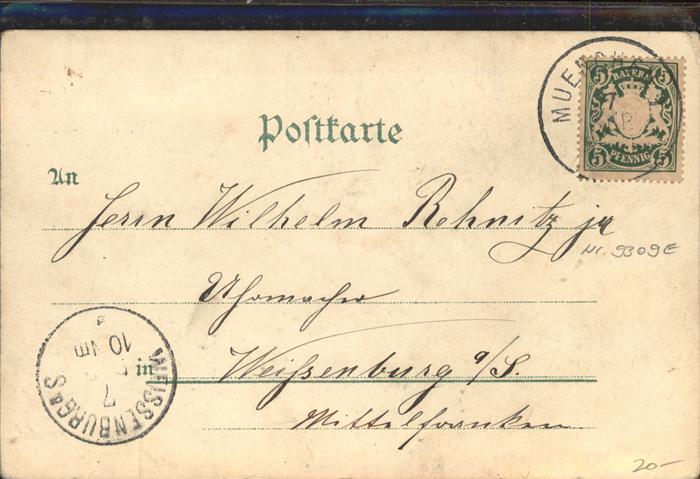 MUENCHEN
7
P
5 5
BAYERN
PFENNIG
5 5
Postkarte
An
Herrn Wilhelm Rehnitz jr
Nr. 9309E
Uhrmacher
in Weißenburg a/S.
Mittelfranken
WEISSENBURG a S
7
10 Nm
20-